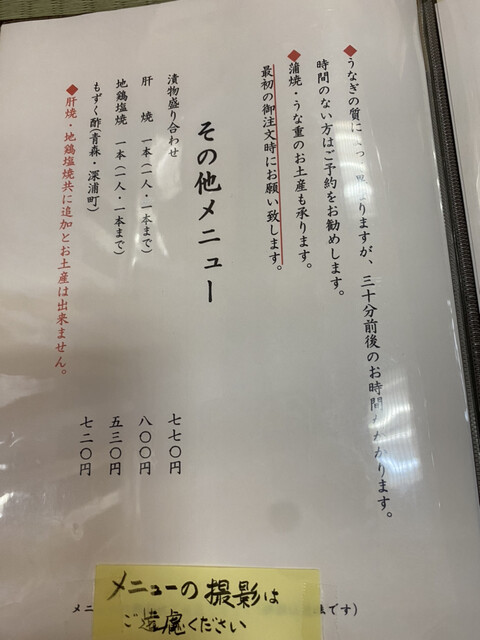 ◆うなぎの質に りますが、三十分前後のお時間 かります。
時間のない方はご予約をお勧めします。
◆蒲焼・うな重のお土産も承ります。
最初の御注文時にお願い致します。
その他メニュー
漬物盛り合わせ 七七〇円
肝 焼 一本(一人・一本まで) 八〇〇円
地鶏塩焼 一本(一人・一本まで) 五三〇円
もずく酢(青森・深浦町) 七二〇円
◆肝焼・地鶏塩焼共に追加とお土産は出来ません。
メニューの撮影は
ご遠慮ください
メニ です)